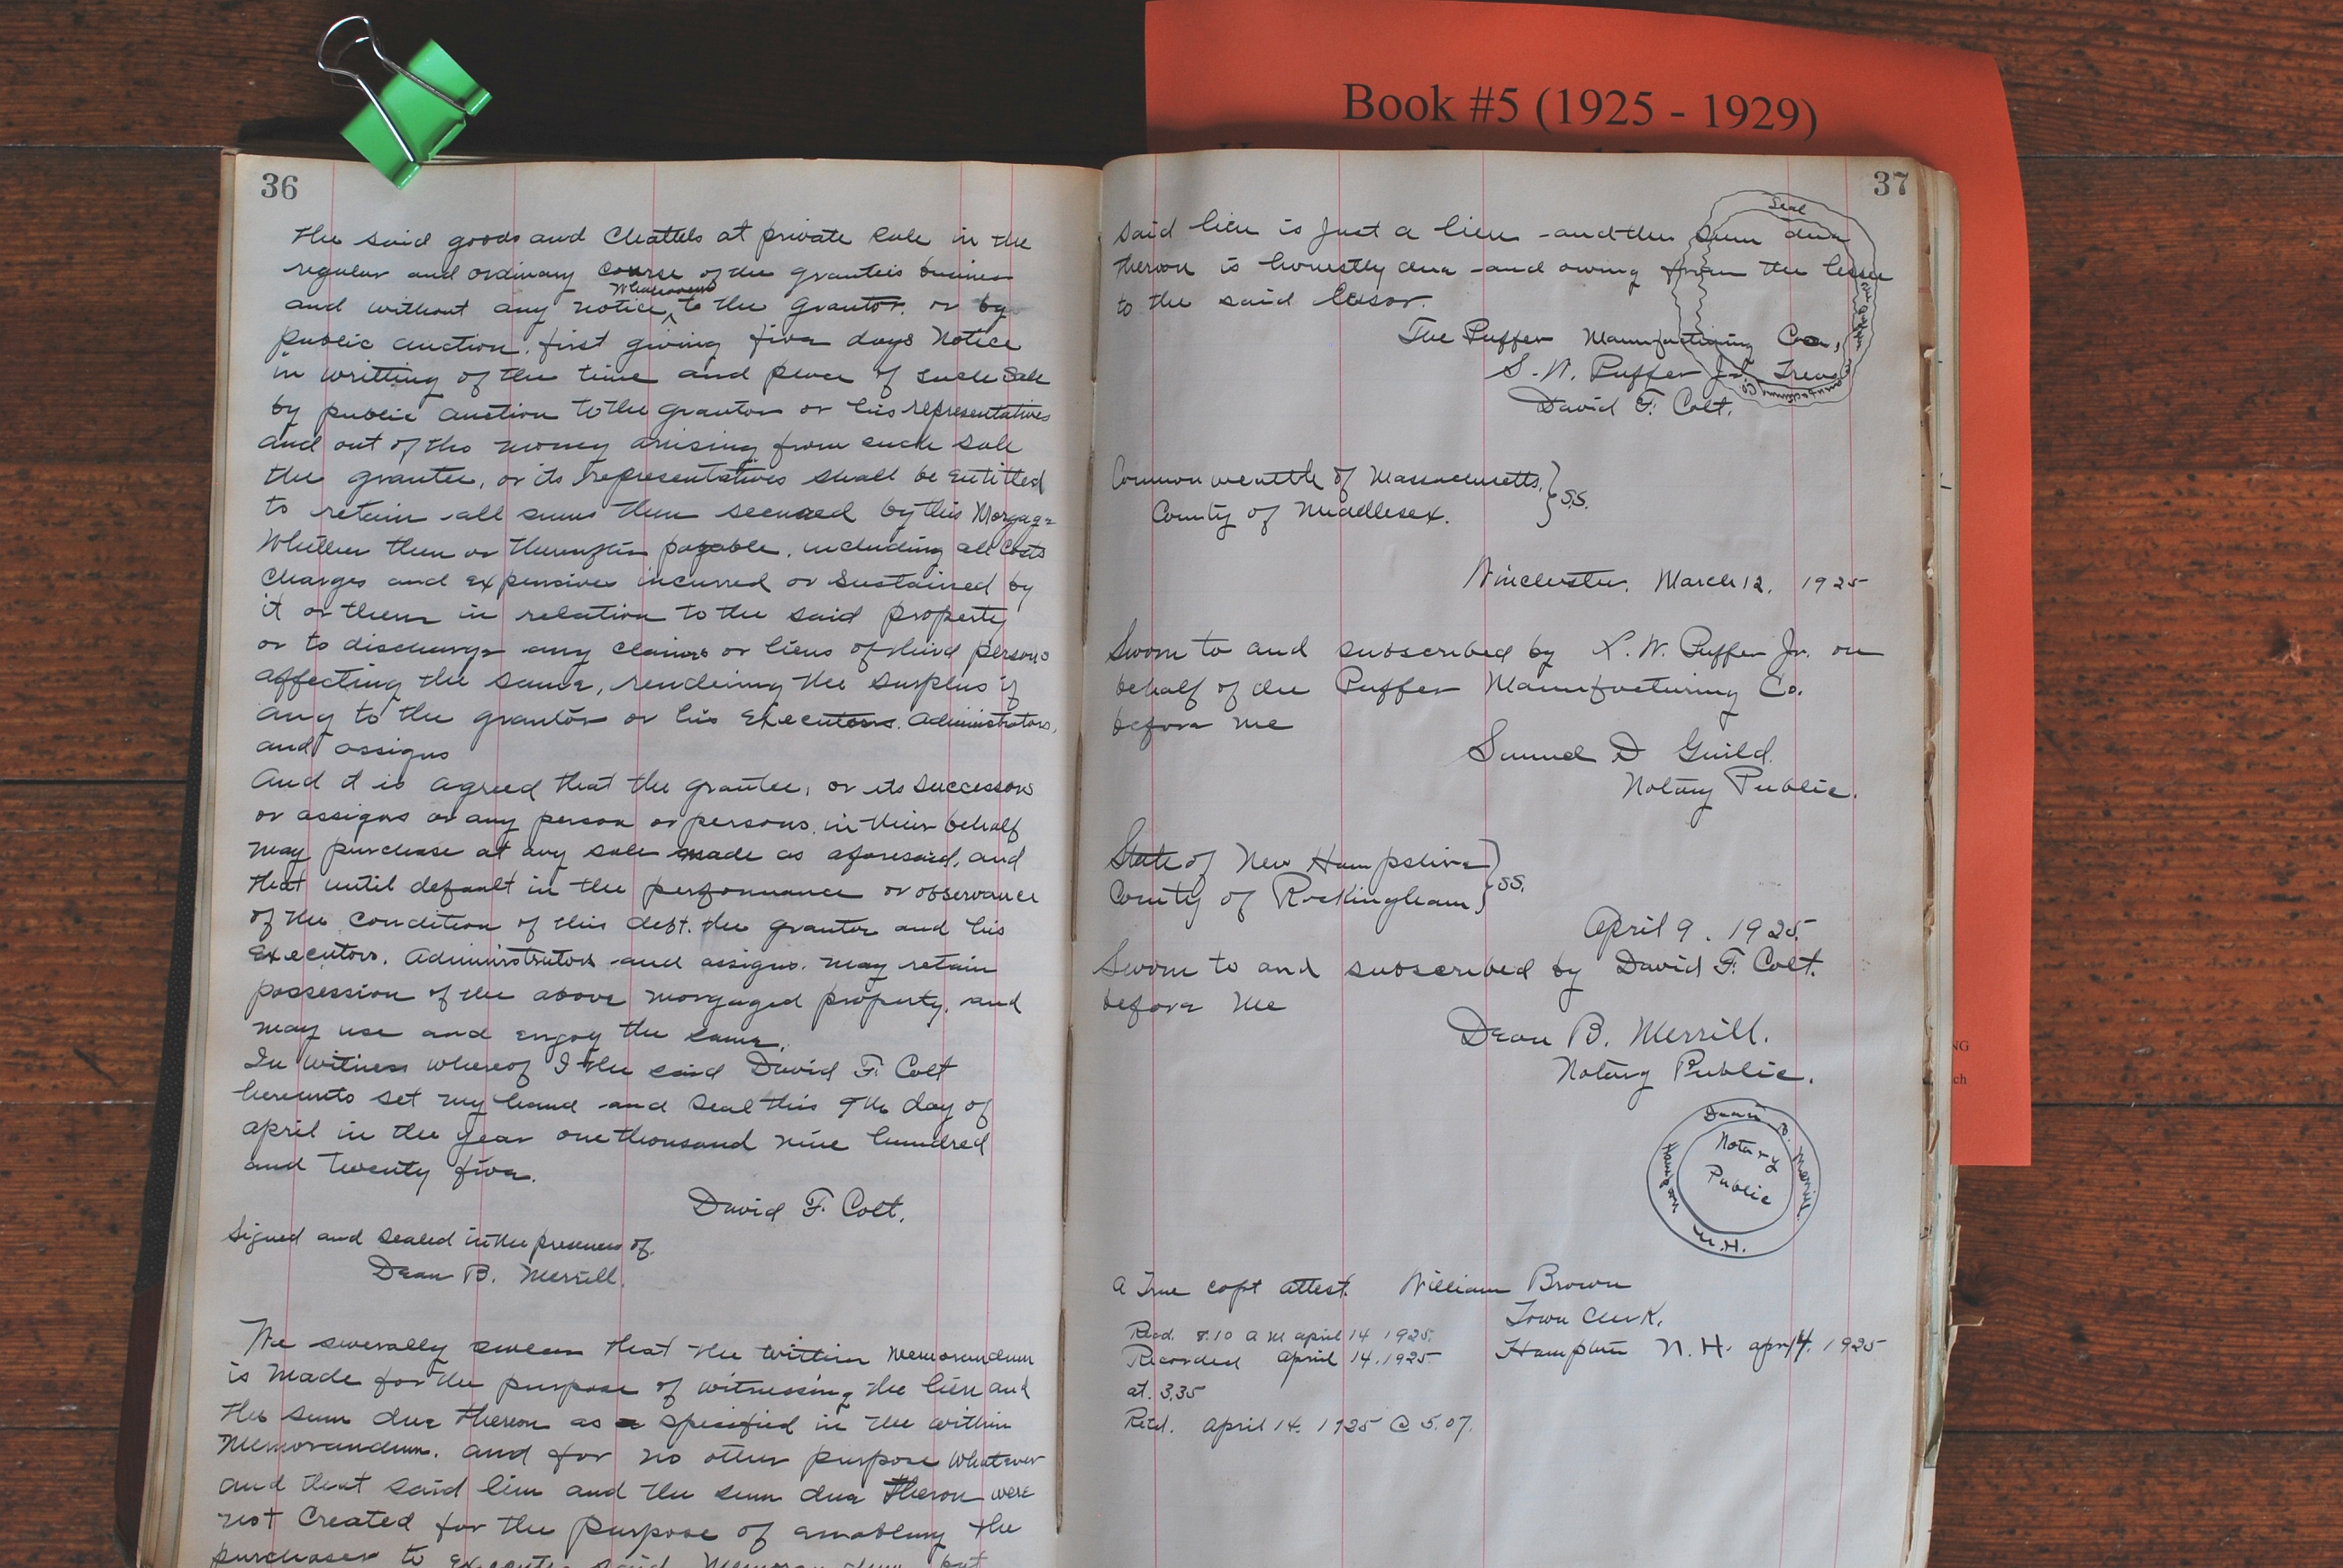 Book #5 (1925 - 1929)
36
the said goods and Chattels at private Sale in the
regular and ordinary Course of the grantees business
whatsoever
and without any notice ^ to the grantor. or by
public auction. first giving five days Notice
in writting of the time and place of such Sale
by public auction to the grantor or his representatives
and out of the money arising from such sale
the grantee, or its representatives shall be Entitled
to retain all sums then secured by this Morgage
Whether then or thereafter payable, including all Costs
Charges and expensives incurred or sustained by
it or them in relation to the said property
or to discharge any claims or liens of third persons
affecting the same, rendering the surplus if
any to the grantor or his Executors. Administrators,
and assigns
And it is agreed that the grantee, or its successors
or assigns or any person or persons in their behalf
may purchase at any sale made as aforesaid, and
that until default in the performance or observance
of the condition of this debt. the grantor and his
Executors. Administrators and assigns. may retain
possession of the above morgaged property. and
may use and enjoy the same.
In witness whereof I the said David F. Colt
hereunto set my hand and seal this 9th day of
April in the year one thousand nine hundred
and twenty five.
David F. Colt.
Signed and sealed in the presence of.
Dean B. Merrill.
We severally swear that the within memorandum
is made for the purpose of witnessing the lien and
the sum due thereon as specified in the within
Memorandum. and for no other purpose whatever
and that said lien and the sum due thereon were
not Created for the purpose of enabling the
purchaser to Execute said Memorandum but
37
Seal
said lien is Just a lien and the sum due
thereon is honestly due and owing from the lessee
to the said lessor.
The Puffer Manufacturing Co.,
S. W. Puffer Jr. Treas
David F. Colt.
Commonwealth of Massachusetts, } S.S.
County of Middlesex.
Winchester. March 12, 1925
Sworn to and subscribed by L. W. Puffer Jr. on
behalf of the Puffer Manufacturing Co.
before me
Samuel D Guild.
Notary Public.
State of New Hampshire } SS.
County of Rockingham
April 9. 1925
Sworn to and subscribed by David F. Colt.
before me
Dean B. Merrill.
Notary Public.
Dean B. Merrill
Notary
Public
Hampton
N.H.
A True copt attest. William Brown
Town Clerk.
Recd. 8.10 A M April 14 1925.
Recorded April 14. 1925
Hampton N. H. Apr 14. 1925
at. 3.35
Retd. April 14. 1925 @ 5.07.
NG
ch